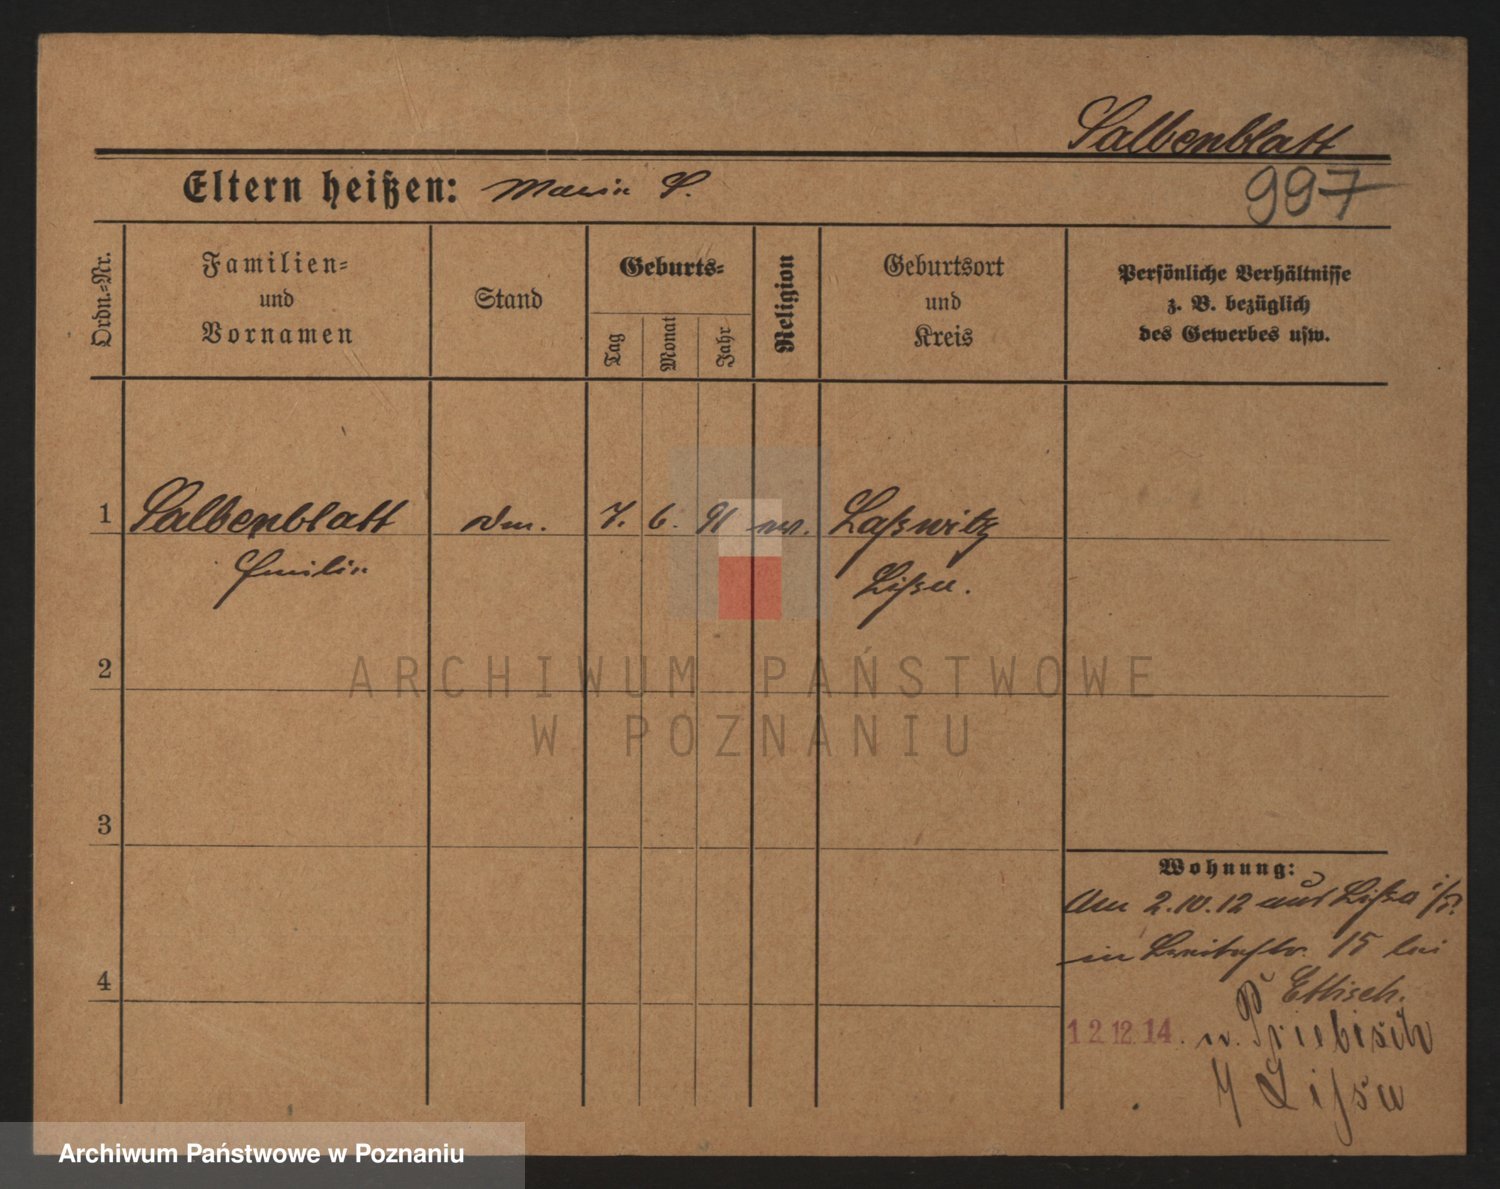 Salbenblatt
Eltern heißen: Marie S.
997
Ordn.-Nr.
Familien-
und
Vornamen
Stand
Geburts-
Tag
Monat
Jahr
Religion
Geburtsort
und
Kreis
Persönliche Verhältnisse
z. B. bezüglich
des Gewerbes usw.
1 Salbenblatt 7. 6. 91 ev. Laßwitz
Emilie Lissa.
2
ARCHIWUM PAŃSTWOWE
W POZNANIU
3
Wohnung:
Am 2.10.12 aus Lissa i/P.
in 15 bei
4
Ettisch.
12.12.14. n. Priebisch
Lissa
Archiwum Państwowe w Poznaniu